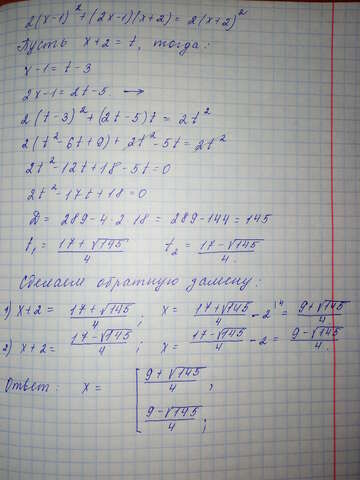 2(x-1)² + (2x-1)(x+2) = 2(x+2)²
Пусть x+2=t, тогда:
x-1=t-3
2x-1=2t-5 →
2(t-3)² + (2t-5)t = 2t²
2(t²-6t+9) + 2t²-5t = 2t²
2t²-12t+18-5t=0
2t²-17t+18=0
D = 289-4·2·18 = 289-144 = 145
t₁ = (17+√145)/4 t₂ = (17-√145)/4.
Сделаем обратную замену:
1) x+2 = (17+√145)/4; x = (17+√145)/4 - 2^\4 = (9+√145)/4
2) x+2 = (17-√145)/4; x = (17-√145)/4 - 2 = (9-√145)/4.
Ответ: x = [ (9+√145)/4,
(9-√145)/4;